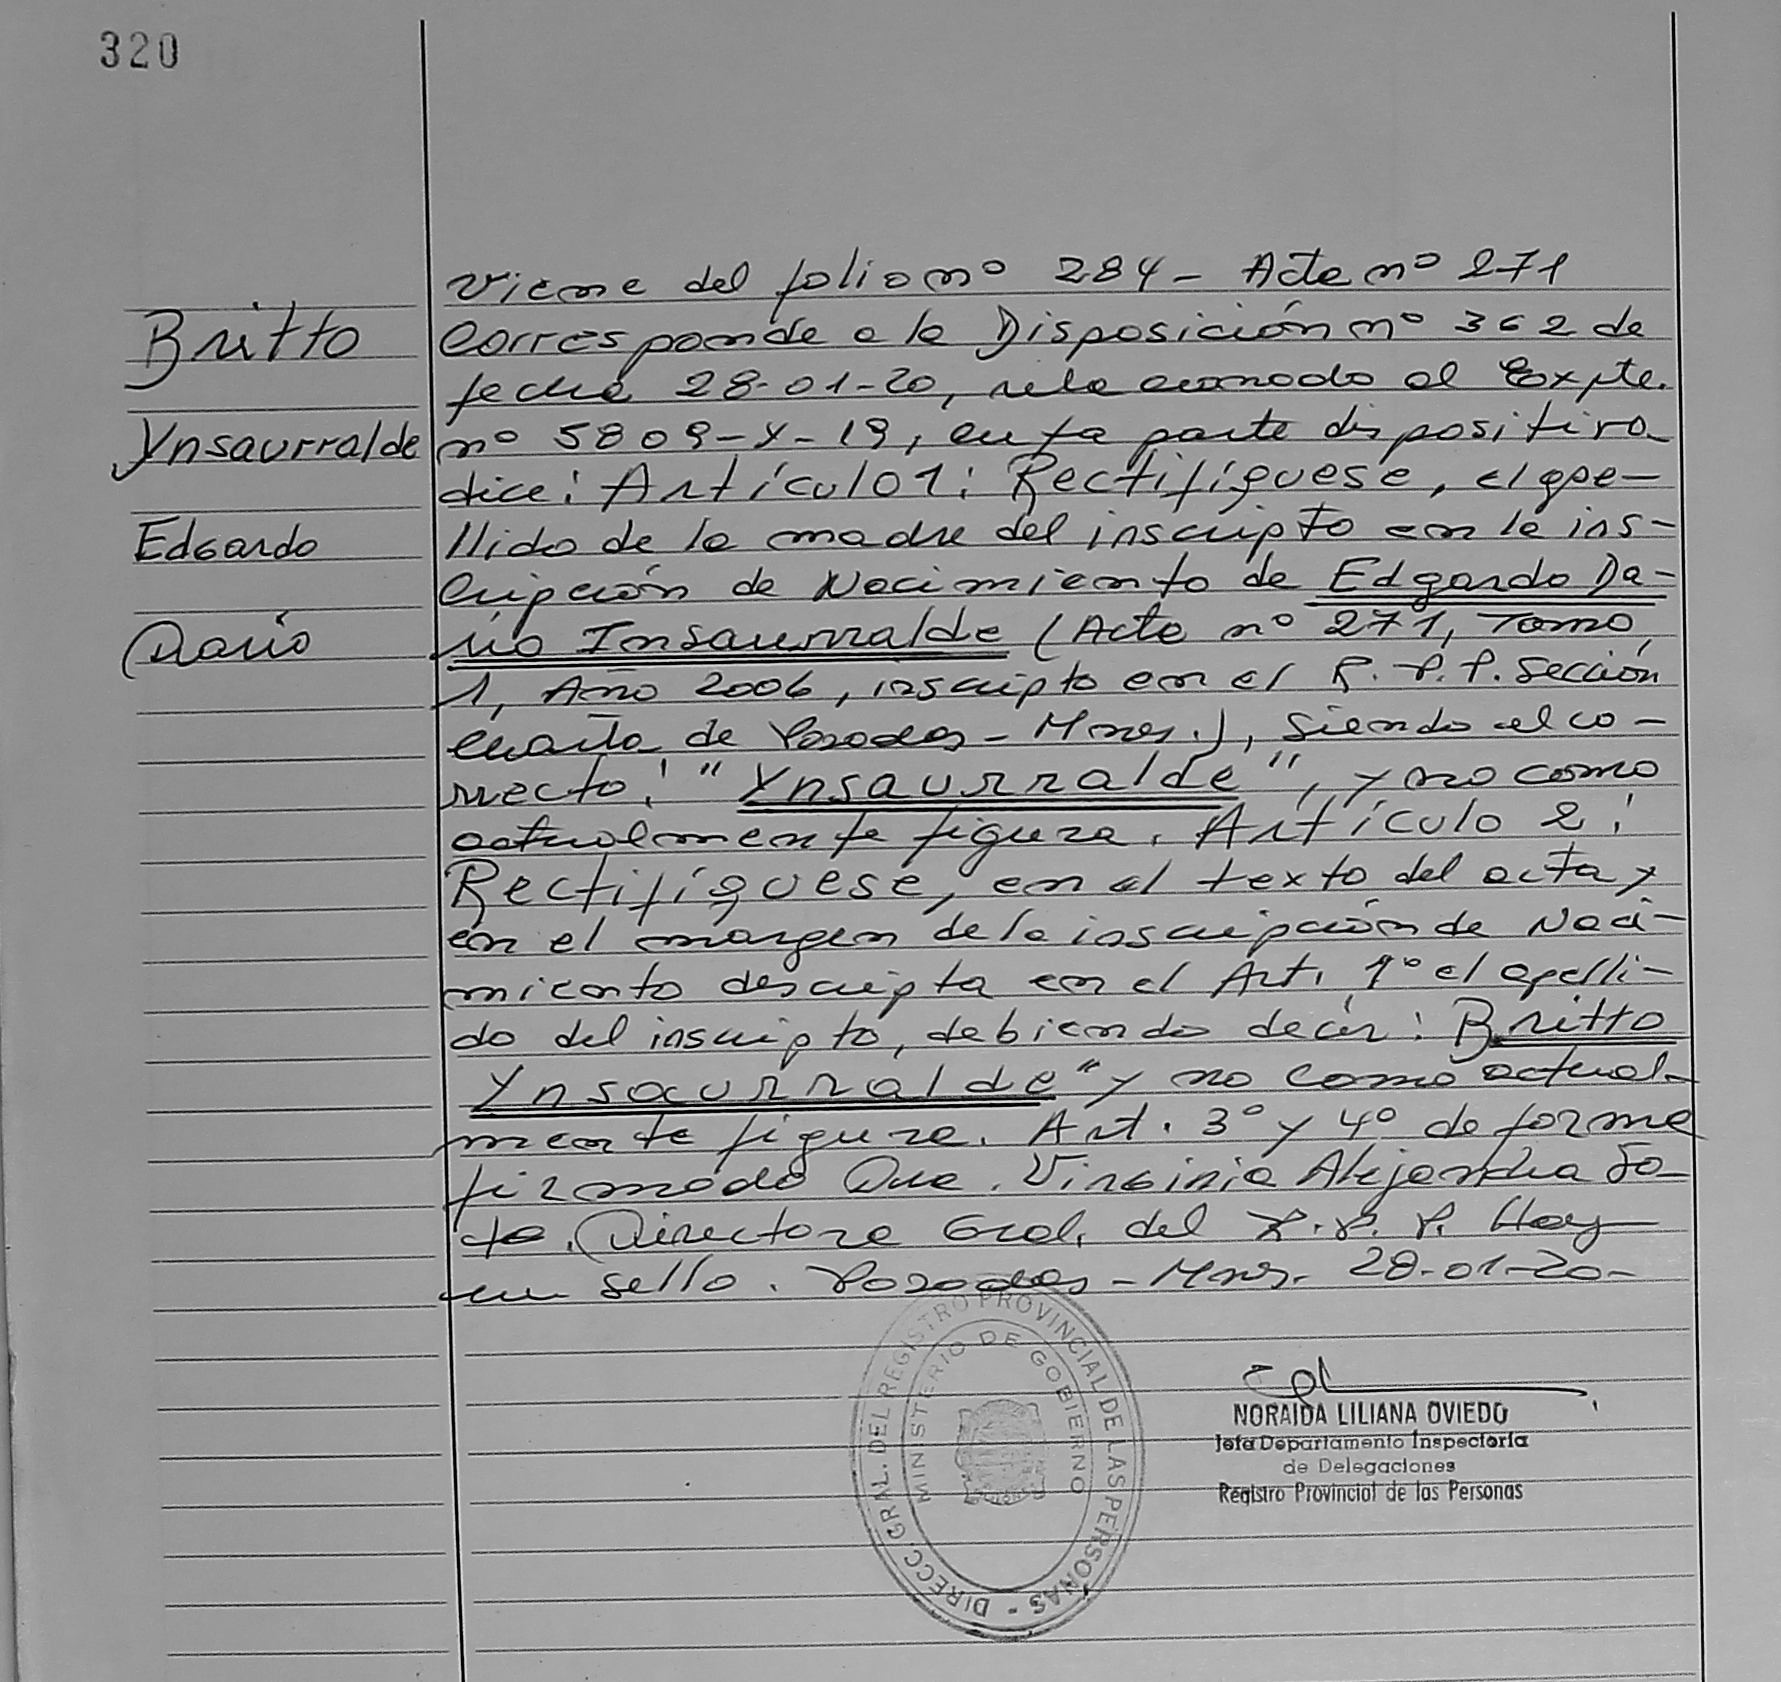 320
Britto
Ynsaurralde
Edgardo
Dario
Viene del folio nº 284 - Acta nº 271
Corresponde a la Disposición nº 362 de
fecha 28-01-20, relacionado al Expte.
nº 5809-Y-19, en la parte dispositiva
dice: Artículo 1: Rectifíquese, el ape-
llido de la madre del inscripto en la ins-
cripción de Nacimiento de Edgardo Da-
rio Insaurralde (Acta nº 271, Tomo
1, Año 2006, inscripto en el R.P.P. Sección
cuarta de Posadas - Mnes.), siendo el co-
rrecto: "Ynsaurralde", y no como
actualmente figura. Artículo 2:
Rectifíquese, en el texto del acta y
en el margen de la inscripción de Naci-
miento descripta en el Art. 1º el apelli-
do del inscripto, debiendo decir: Britto
Ynsaurralde" y no como actual-
mente figura. Art. 3º y 4º de forma
firmado Dra. Virginia Alejandra So-
to. Directora Gral. del R.P.P. Hay
un sello. Posadas - Mnes. 28-01-20-
DIRECC. GRAL. DEL REGISTRO PROVINCIAL DE LAS PERSONAS -
MINISTERIO DE GOBIERNO
NORAIDA LILIANA OVIEDO
Jefa Departamento Inspectoría
de Delegaciones
Registro Provincial de las Personas